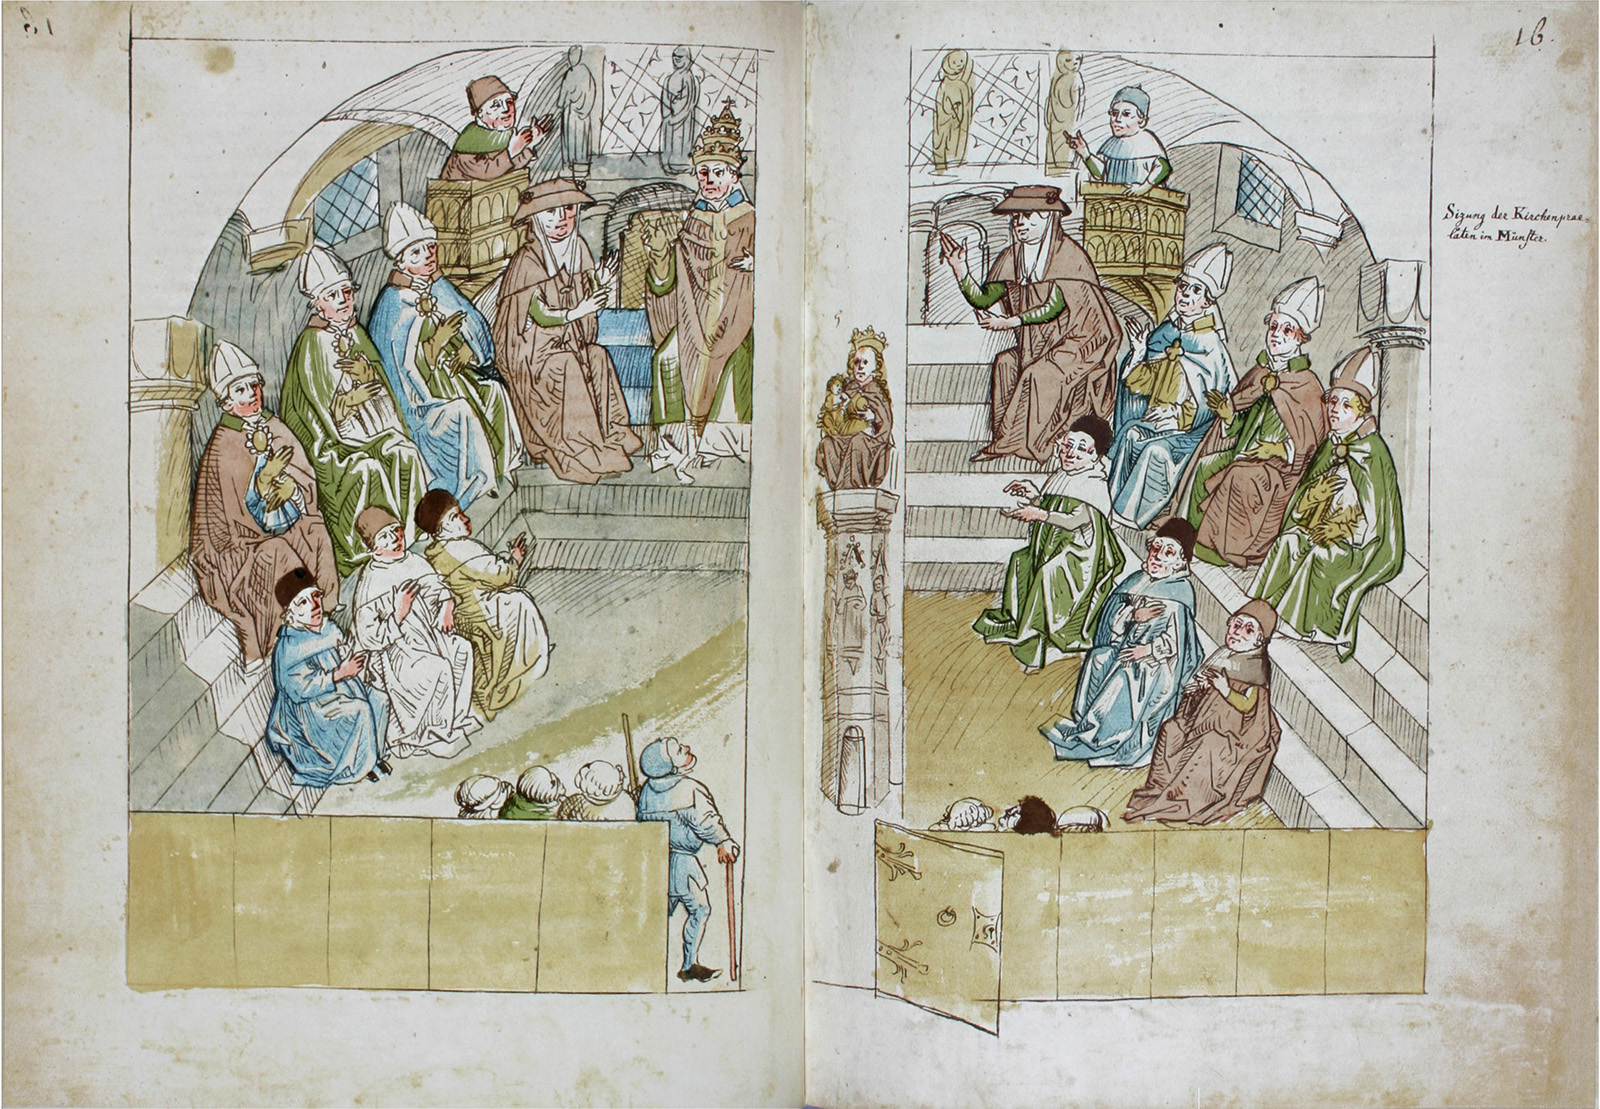 16.
Sizung der Kirchenprae-
laten im Münster.